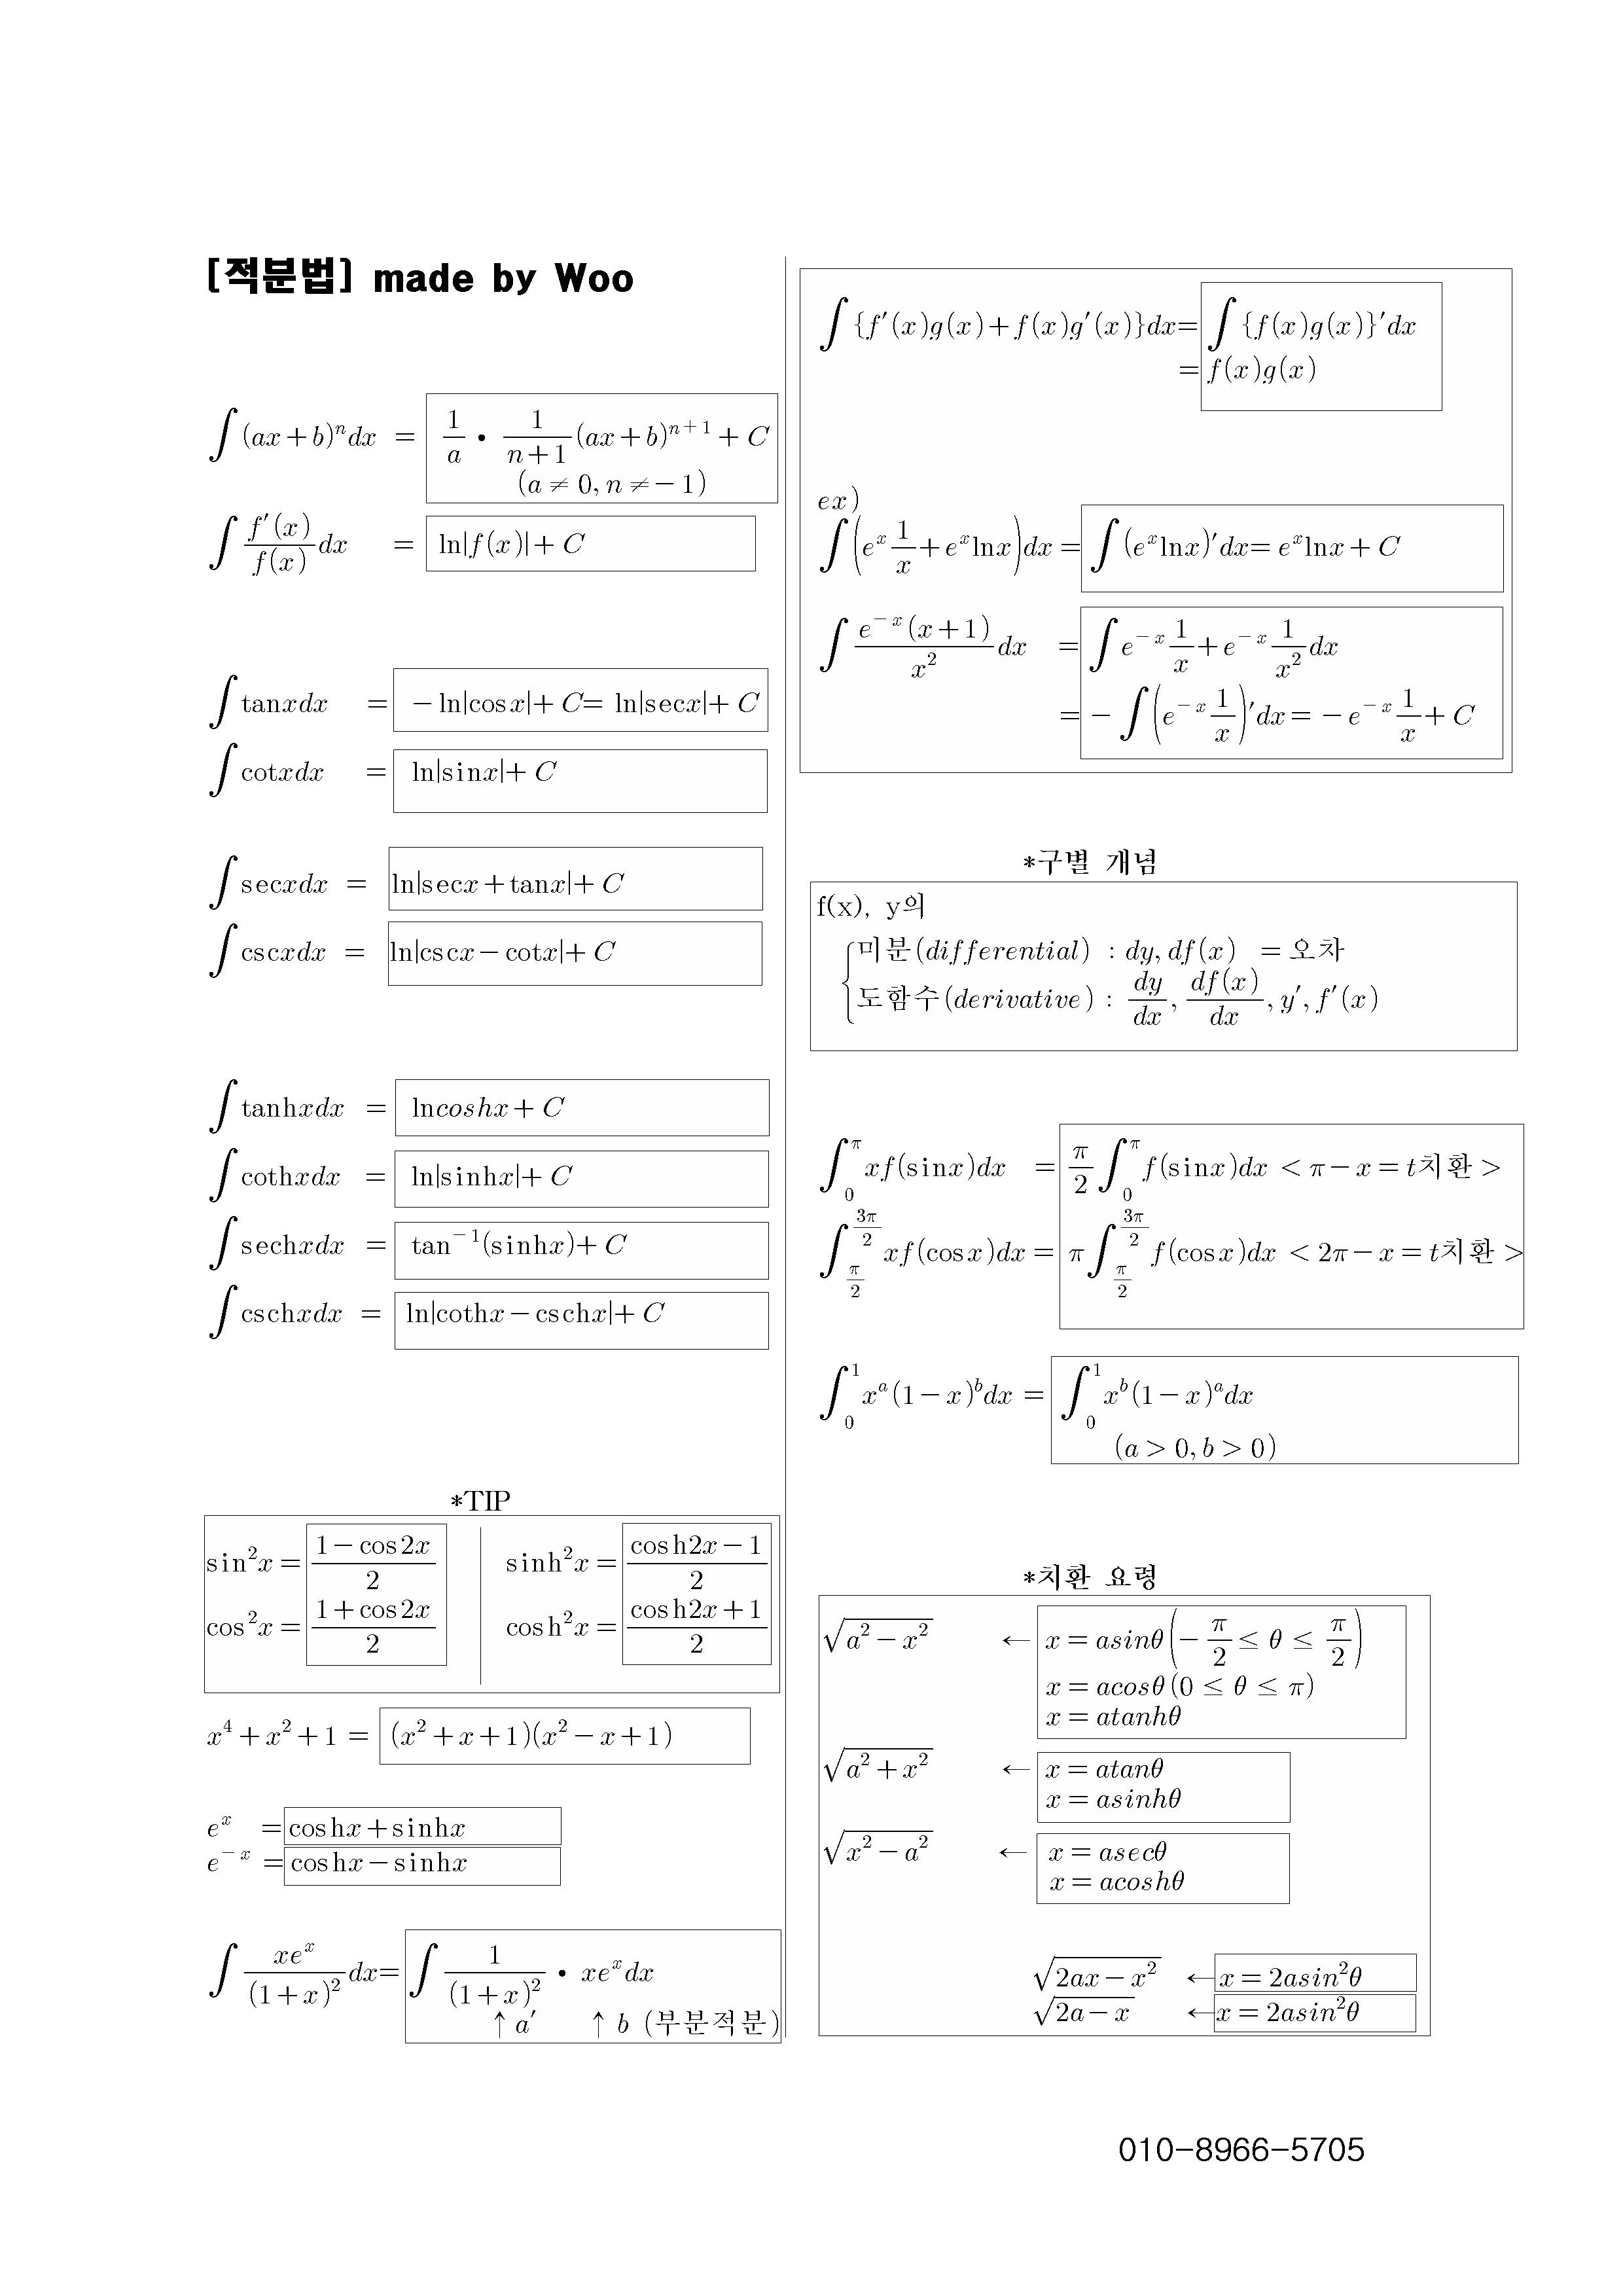 [적분법] made by Woo
∫(ax+b)ⁿdx = 1/a • 1/(n+1) (ax+b)ⁿ⁺¹ + C
(a ≠ 0, n ≠ −1)
∫ f′(x)/f(x) dx = ln|f(x)| + C
∫tanxdx = −ln|cosx| + C = ln|secx| + C
∫cotxdx = ln|sinx| + C
∫secxdx = ln|secx + tanx| + C
∫cscxdx = ln|cscx − cotx| + C
∫tanhxdx = lncoshx + C
∫cothxdx = ln|sinhx| + C
∫sechxdx = tan⁻¹(sinhx) + C
∫cschxdx = ln|cothx − cschx| + C
*TIP
sin²x = (1 − cos2x)/2
cos²x = (1 + cos2x)/2
sinh²x = (cosh2x − 1)/2
cosh²x = (cosh2x + 1)/2
x⁴ + x² + 1 = (x² + x + 1)(x² − x + 1)
eˣ = coshx + sinhx
e⁻ˣ = coshx − sinhx
∫ xeˣ/(1+x)² dx = ∫ 1/(1+x)² • xeˣdx
↑ a′ ↑ b (부분적분)
∫{f′(x)g(x) + f(x)g′(x)}dx = ∫{f(x)g(x)}′dx
= f(x)g(x)
ex)
∫(eˣ 1/x + eˣlnx)dx = ∫(eˣlnx)′dx = eˣlnx + C
∫ e⁻ˣ(x+1)/x² dx = ∫e⁻ˣ 1/x + e⁻ˣ 1/x² dx
= −∫(e⁻ˣ 1/x)′dx = −e⁻ˣ 1/x + C
*구별 개념
f(x), y의
미분(differential) : dy, df(x) = 오차
도함수(derivative) : dy/dx, df(x)/dx, y′, f′(x)
∫₀^π xf(sinx)dx = π/2 ∫₀^π f(sinx)dx < π − x = t치환 >
∫_{π/2}^{3π/2} xf(cosx)dx = π∫_{π/2}^{3π/2} f(cosx)dx < 2π − x = t치환 >
∫₀¹ xᵃ(1−x)ᵇdx = ∫₀¹ xᵇ(1−x)ᵃdx
(a > 0, b > 0)
*치환 요령
√(a² − x²) ← x = asinθ(−π/2 ≤ θ ≤ π/2)
x = acosθ(0 ≤ θ ≤ π)
x = atanhθ
√(a² + x²) ← x = atanθ
x = asinhθ
√(x² − a²) ← x = asecθ
x = acoshθ
√(2ax − x²) ← x = 2asin²θ
√(2a − x) ← x = 2asin²θ
010-8966-5705